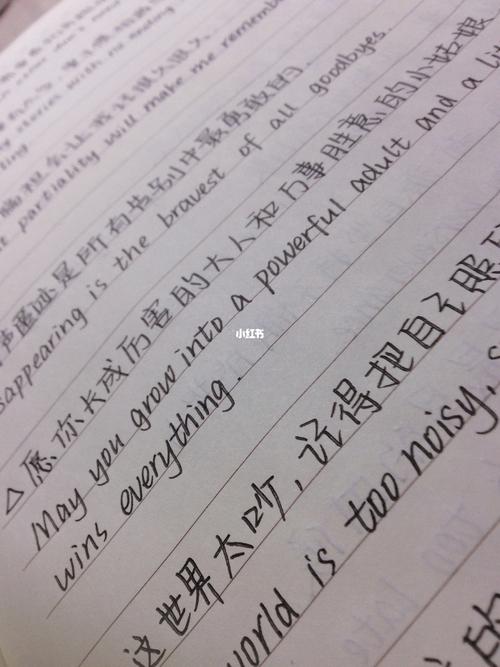 stories with no ending
偏袒会让我记很久很久.
partiality will make me remembe
声匿迹是所有告别中最勇敢的.
sappearing is the bravest of all goodbyes.
△愿你长成厉害的大人和万事胜意的小姑娘
May you grow into a powerful adult and a li
wins everything.
小红书
这世界太吵,记得把自己照
world is too noisy,
的